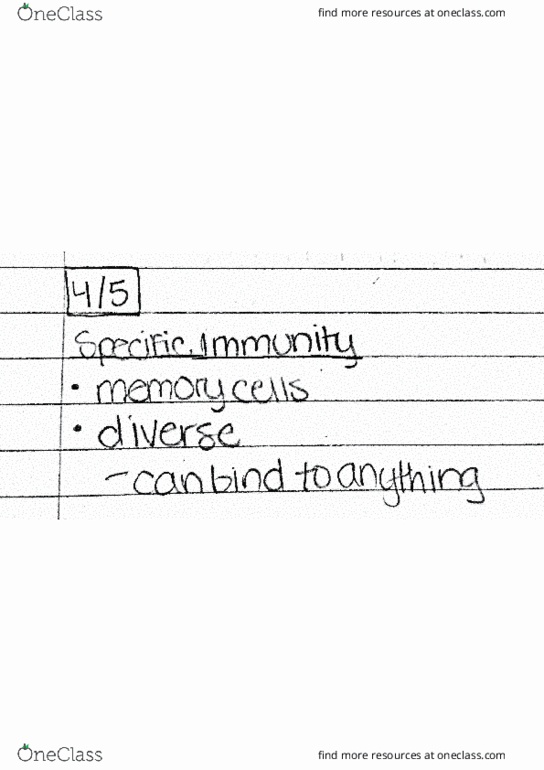 OneClass find more resources at oneclass.com
4/5
Specific Immunity
• memory cells
• diverse
- can bind to anything
OneClass find more resources at oneclass.com